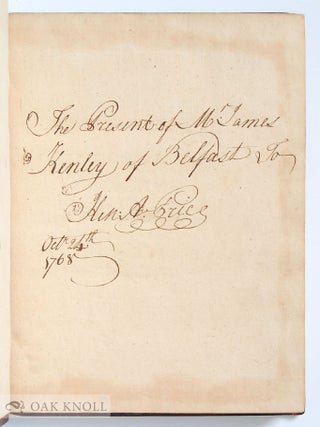 The Present of Mr James
Kenley of Belfast To
Price
Octr 24th
1768
OAK KNOLL